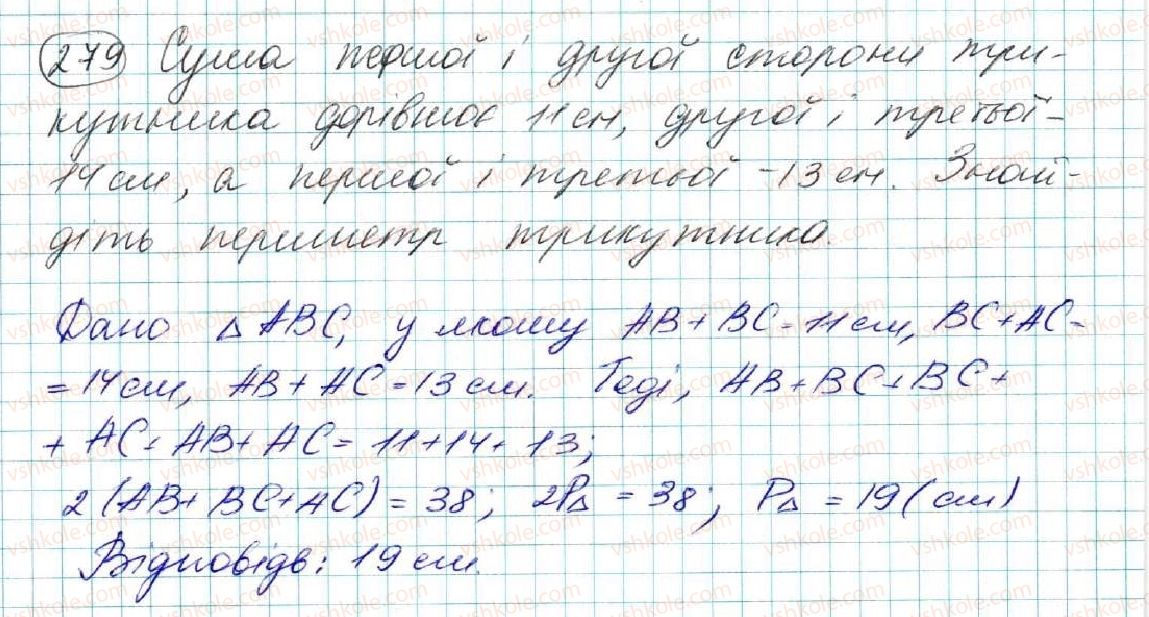 279 Сума першої і другої сторони три-
кутника дорівнює 11 см, другої і третьої -
14 см, а першої і третьої - 13 см. Знай-
діть периметр трикутника.
Дано △ ABC, у якому AB + BC = 11 см, BC + AC =
= 14 см, AB + AC = 13 см. Тоді, AB + BC + BC +
+ AC + AB + AC = 11 + 14 + 13;
2 (AB + BC + AC) = 38; 2P△ = 38; P△ = 19 (см)
Відповідь: 19 см.